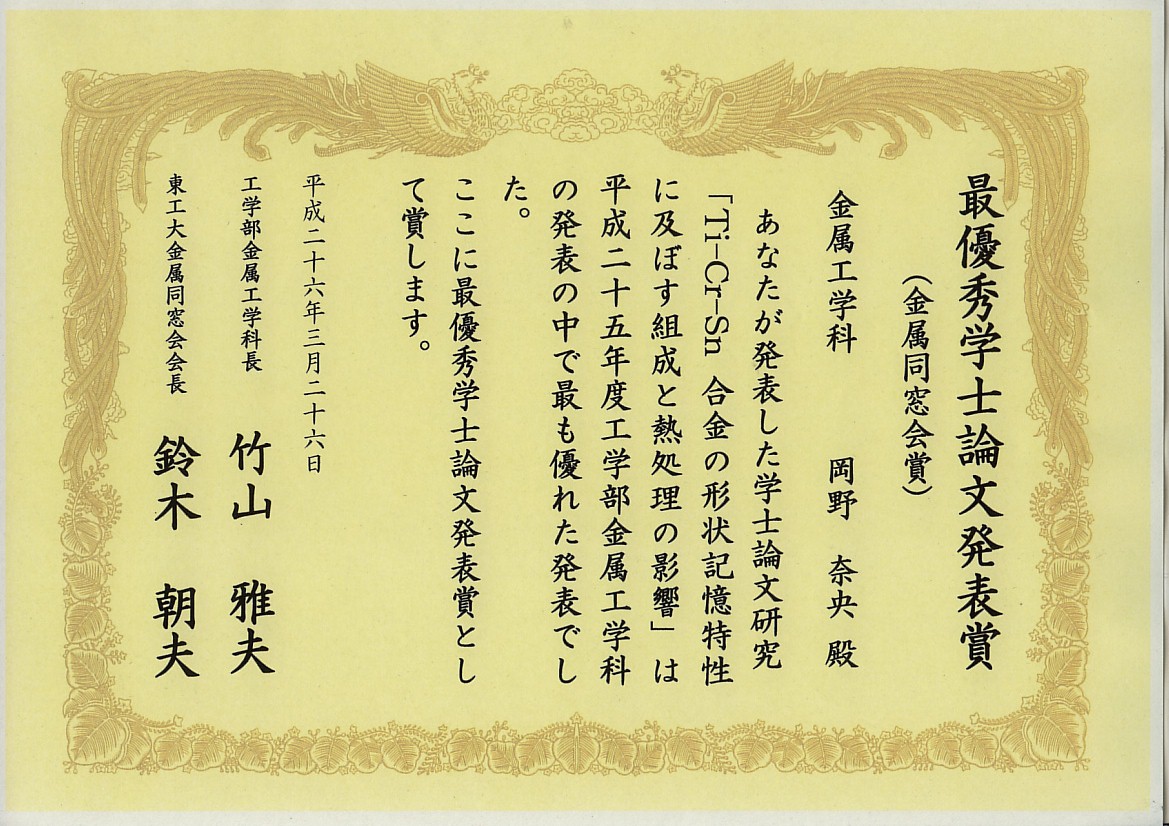 最優秀学士論文発表賞
（金属同窓会賞）
金属工学科　岡野　奈央　殿
あなたが発表した学士論文研究
「Ti-Cr-Sn 合金の形状記憶特性
に及ぼす組成と熱処理の影響」は
平成二十五年度工学部金属工学科
の発表の中で最も優れた発表でし
た。
ここに最優秀学士論文発表賞とし
て賞します。
平成二十六年三月二十六日
工学部金属工学科長　竹山　雅夫
東工大金属同窓会会長　鈴木　朝夫